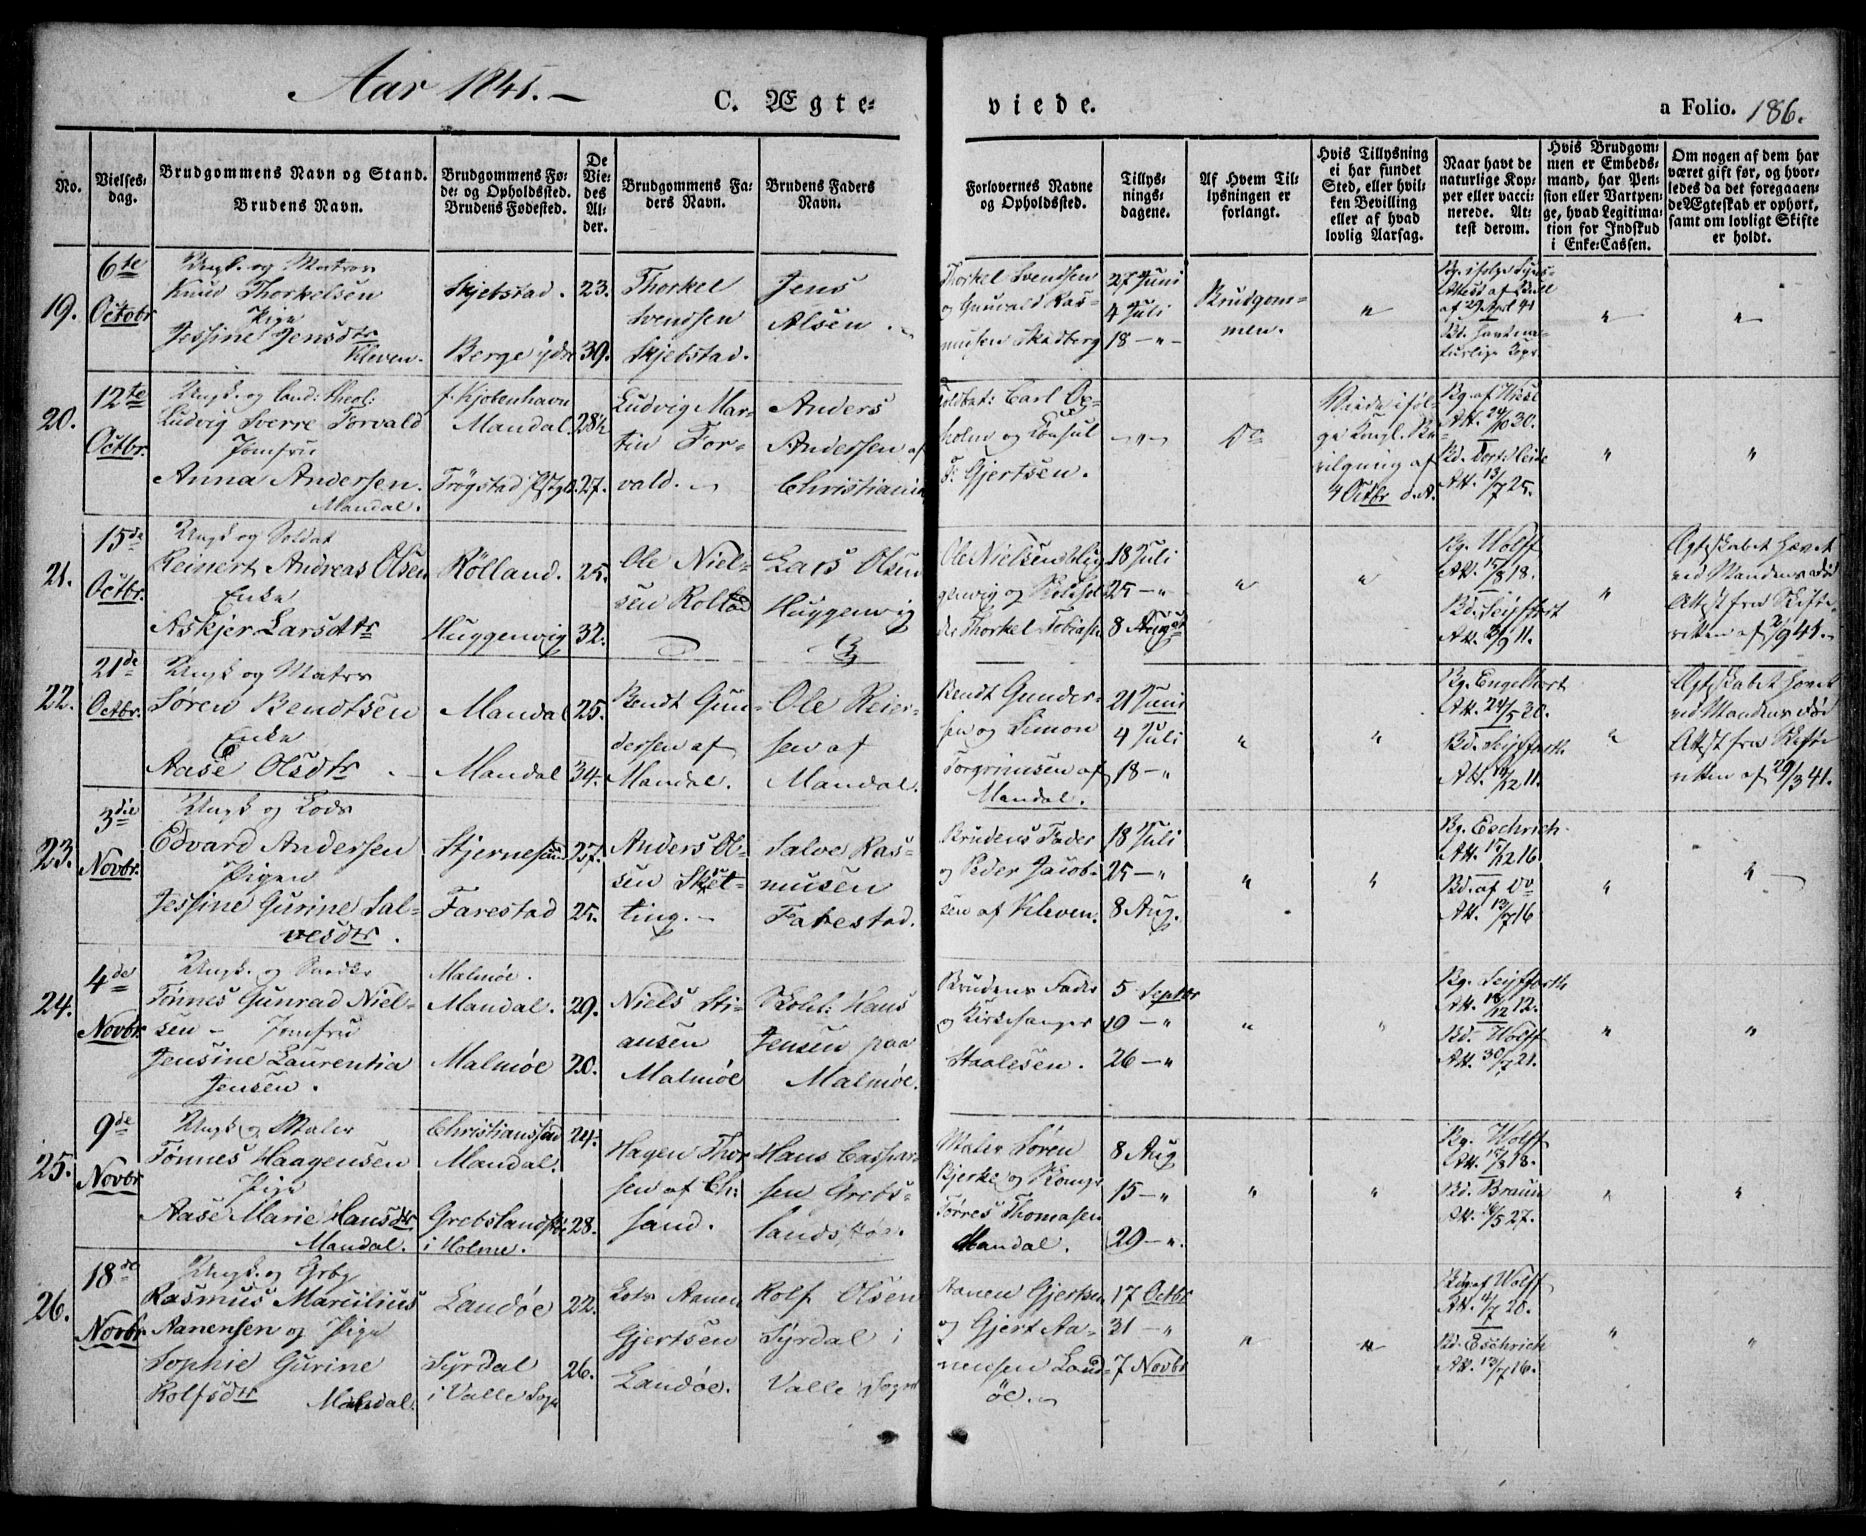 Aar 1841. –
C. Ægte-
viede.
a Folio. 186.
No.
Vielses-
dag.
Brudgommens Navn og Stand.
Brudens Navn.
Brudgommens Fø-
de- og Opholdssted.
Brudens Fødested.
De
Vie-
des
Al-
der.
Brudgommens Fa-
ders Navn.
Brudens Faders
Navn.
Forlovernes Navne
og Opholdssted.
Tillys-
nings-
dagene.
Af Hvem Til-
lysningen er
forlangt.
Hvis Tillysning
ei har fundet
Sted, eller hvil-
ken Bevilling
eller af hvad
lovlig Aarsag.
Naar havt de
naturlige Kop-
per eller vacci-
nerede. At-
test derom.
Hvis Brudgom-
men er Embeds-
mand, har Pen-
sion eller Vartpen-
ge, hvad Legitima-
tion for Indskud
i Enke-Cassen.
Om nogen af dem har
været gift før, og hvor-
ledes da det foregaaen-
de Ægteskab er ophørt,
samt om lovligt Skifte
er holdt.
19.
6te
Octobr
Ungk. og Matros
Knud Thorkelsen
Pige
Jessine Jensdtr
Kleven.
Skjebstad.
Berge ydre
23.
39.
Thorkel
Svendsen
Skjebstad.
Jens
Alsen
Thorkel Svendsen
og Gunvald Ras-
musen Skadberg
27 Juni
4 Juli
18 – "
Brudgom-
men.
"
Bg. ifølge
af 29 April 41
Bd. havt na-
turlige Kopr
"
"
20.
12te
Octbr.
Ungk. og Cand: theol:
Ludvig Sverre Torvald
Jomfru
Anna Andersen.
Mandal.
f. Kjøbenhavn
Mandal.
Trøgstad
28½
27.
Ludvig Mar-
tin Tor-
vald.
Anders
Andersen af
Christiania
Carl
holm og Consul
F: Gjertsen.
– " –
Do
Viede iføl-
ge Kongl. Be-
vilgning af
4 Octbr d.A.
Bg. af
Att. 24/10 30.
Bd.
Att. 13/7 25.
"
"
21.
15de
Octbr.
Ungk og Soldat
Reinert Andreas Olsen
Enke
Askjer Larsdtr
Rölland.
Huggenvig
25.
32.
Ole Niel-
sen Rolland
Lars Olsen
Huggenvig
Ole Nielsen
genvig og
Thorkel Tobiasen
18 Juli
25 – "
8 August
"
"
Bg. Wolff
Att. 15/8 18.
Bd. Seyffart
Att. 3/9 11.
"
Ægteskabet hævet
ved Mandens Død
Attest fra Skifte-
retten af 2/9 41.
22.
21de
Octbr.
Ungk og Matros
Søren Bendtsen
Enke
Aase Olsdtr
Mandal
Mandal
25.
34.
Bendt Gun-
dersen af
Mandal.
Ole Reier-
sen af
Mandal.
Bendt Gunder-
sen og Simon
Torgrimsen af
Mandal.
21 Juni
4 Juli
18 – "
"
"
Bg. Engelhart
Att. 24/5 30.
Bd. Seyffarth
Att. 12/12 11.
"
Ægteskabet hævet
ved Mandens Død
Attst fra Skifte
retten af 29/3 41.
23.
3die
Novbr.
Ungk og Lods
Edvard Andersen
Pigen
Jessine Gurine Sal-
vesdtr.
Stjernesund
Farestad
27.
25.
Anders Ol-
sen Sket-
ting. –
Salve Ras-
musen
Farestad.
Brudens Fader
og Peder Jacob-
sen af Kleven.
18 Juli
25 – "
8 Aug.
"
"
Bg. Eschrich
Att. 15/12 16
Bd. af Do
Att. 13/7 16
"
"
24.
4de
Novbr
Ungk. og Snedker
Tønnes Gunrad Niel-
sen – Jomfru
Jensine Laurentia
Jensen.
Malmøe.
Mandal.
Malmøe
29.
20.
Niels Sti-
ansen
Malmøe
Skolel: Hans
Jensen paa
Malmøe.
Brudens Fader
og Kirkesanger
Staalesen.
5 Septbr
19 – "
26 – "
"
"
Bg. Seyffarth
Att. 18/12 12.
Bd. Wolff
Att. 30/7 21.
"
"
25.
9de
Novbr
Ungk. og Maler
Tønnes Haagensen
Pige
Aase Marie Hansdtr
Mandal.
Christianssand
Mandal.
Grebslandstø
i Holme.
24.
28.
Hagen Thor
sen af Ch:
sand.
Hans Caspar-
sen Grebs-
landstøe.
Maler Søren
Bjerke og
Tørres Thomasen
Mandal.
8 Aug
15 – "
29 – ".
"
"
Bg. Wolff
Att. 15/8 18.
Bd. Braun
Att. 16/5 27.
"
"
26.
18de
Novbr
Ungk. og Grbg
Rasmus Marcilius
Aanensen og Pige
Sophie Gurine
Rolfsdtr Mandal.
Landøe
Syrdal
i Valle Sogn
22.
26.
Lods Aanen
Gjertsen
Landøe.
Rolf Olsen
Syrdal i
Valle Sogn
Aanen Gjertsen
og Gjert Aa-
nensen Land-
öe.
17 Octbr
31 – "
7 Novbr
"
"
Bg. af Wolff
Att. 4/7 20.
Bd. Eschrich
Att. 13/7 16.
"
"